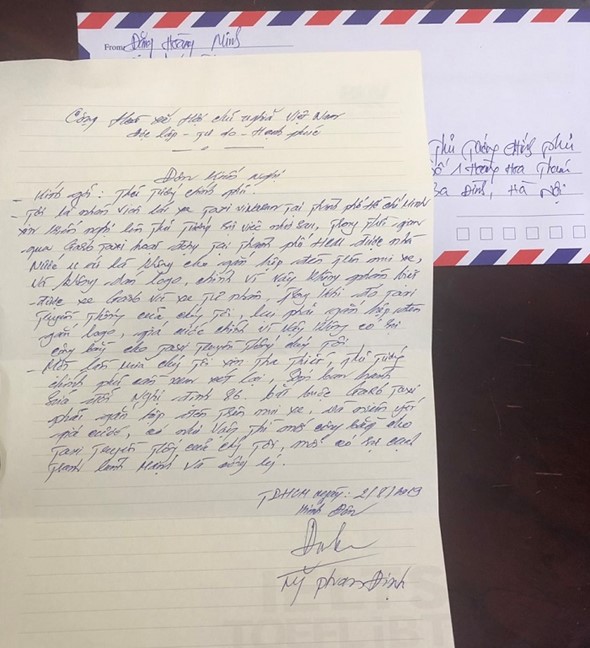 From: Đặng Hoàng Minh
Thủ Tướng Chính phủ
Số 1 Hoàng Hoa Thám
Ba Đình, Hà Nội
Cộng Hòa xã Hội chủ nghĩa Việt Nam
Độc lập - Tự do - Hạnh phúc
Đơn Kiến Nghị
- Kính gửi: Thủ Tướng chính phủ
- Tôi là nhân viên lái xe Taxi vinasun Tại Thành phố Hồ Chí Minh
xin kiến nghị lên thủ tướng sự việc như sau, Trong thời gian
qua Grab Taxi hoạt động Tại Thành phố HCM được nhà
Nước là không cho gắn hộp đèn trên mui xe,
và không dán logo, chính vì vậy không phân biệt
được xe Grab và xe Tư nhân, Trong khi đó Taxi
Truyền thống của chúng Tôi, phải gắn hộp đèn
gắn logo, giá cước chính vì vậy không có sự
công bằng cho Taxi Truyền thống chúng Tôi
- Một lần nữa chúng Tôi xin tha thiết, thủ Tướng
chính phủ cần xem xét lại, ban hành
sửa đổi Nghị định 86. bắt buộc Grab Taxi
phải gắn hộp đèn trên mui xe, và niêm yết
giá cước, có như vậy thì mới công bằng cho
Taxi Truyền Thống của chúng Tôi, mới có sự cạnh
Tranh lành mạnh và
TPHCM ngày: 2/8/2019
Mỹ Phan Định